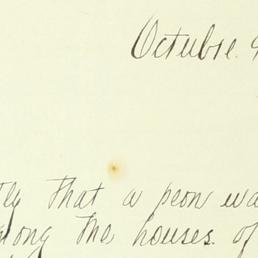 Octubre 9
tly that a peon wa
along the houses of